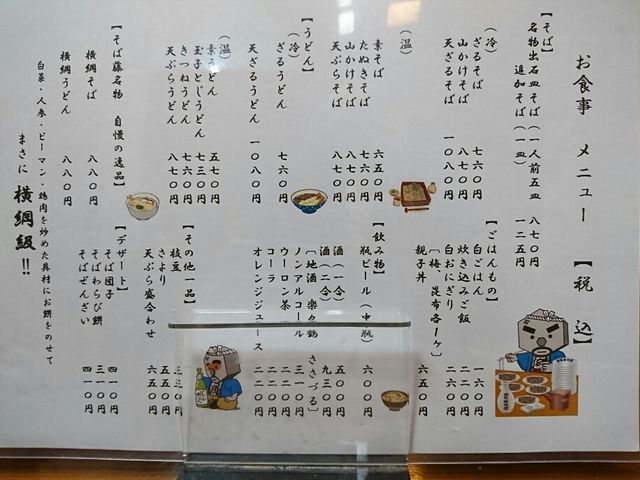 お食事 メニュー 【税込】
【そば】
名物出石皿そば(一人前五皿) 八七〇円
追加そば(一皿) 一二五円
(冷)
ざるそば 七六〇円
山かけそば 八七〇円
天ざるそば 一〇八〇円
(温)
素そば 六五〇円
たぬきそば 七六〇円
山かけそば 八七〇円
天ぷらそば 八七〇円
【うどん】
(冷)
ざるうどん 七六〇円
天ざるうどん 一〇八〇円
(温)
素うどん 五七〇円
玉子とじうどん 七三〇円
きつねうどん 七六〇円
天ぷらうどん 八七〇円
【そば藤名物 自慢の逸品】
横綱そば 八八〇円
横綱うどん 八八〇円
白菜・人参・ピーマン・鶏肉を炒めた具材にお餅をのせて
まさに 横綱級!!
【ごはんもの】
白ごはん 一六〇円
炊き込みご飯 二二〇円
白おにぎり 二六〇円
〔梅、昆布各一ケ〕
親子丼 六五〇円
【飲み物】
瓶ビール(中瓶) 六〇〇円
酒(一合) 五〇〇円
酒(二合) 九三〇円
〔地酒 楽々鶴 ささづる〕
ノンアルコール 三一〇円
ウーロン茶 二二〇円
コーラ 二二〇円
オレンジジュース 二二〇円
【その他一品】
枝豆 三三〇円
さより 五五〇円
天ぷら盛合わせ 六五〇円
【デザート】
そば団子 四一〇円
そばわらび餅 三一〇円
そばぜんざい 四一〇円